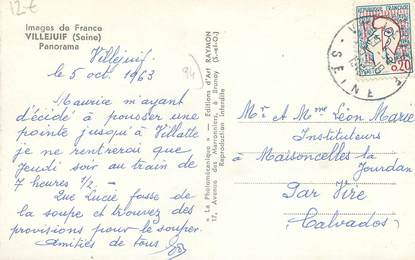 12 €
Images de France
VILLEJUIF (Seine)
Panorama
Villejuif
le 5 oct 1963
94
Maurice m'ayant
décidé à pousser une
pointe jusqu'à Villatte
je ne rentrerai que
Jeudi soir au train de
7 heures ½ —
Que Lucie fasse de
la soupe et trouvez des
provisions pour le souper.
Amitiés de tous
« La Photomécanique » — Editions d'Art RAYMON
17, Avenue des Marronniers, à Brunoy (S.-et-O.)
Reproduction interdite
REPUBLIQUE FRANÇAISE
0,20
SEINE
Mr & Mme Léon Marie
Instituteurs
à Maisoncelles la
Jourdan
Par Vire
Calvados